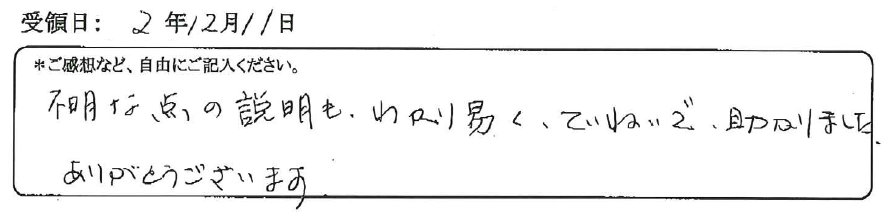 受領日： 2 年12月11日
＊ご感想など、自由にご記入ください。
不明な点の説明も、わかり易く、ていねいで、助かりました。
ありがとうございます